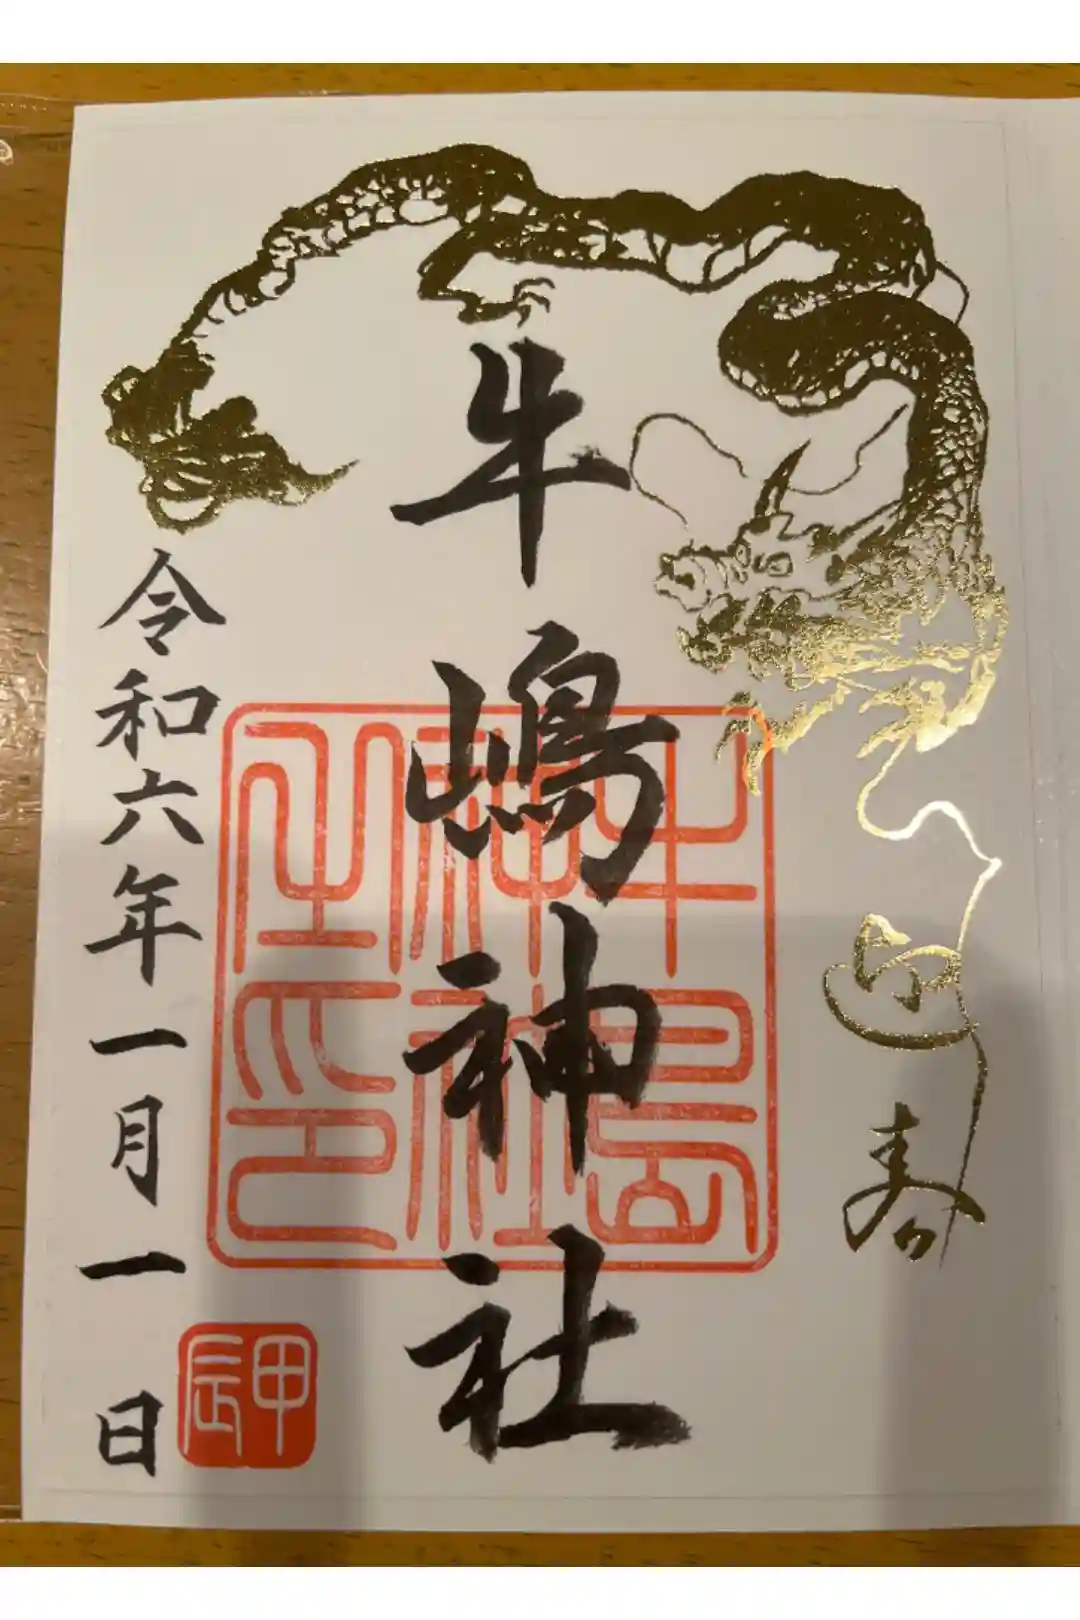 迎
寿
牛嶋神社
牛嶋
神社
之印
令和六年一月一日
甲辰